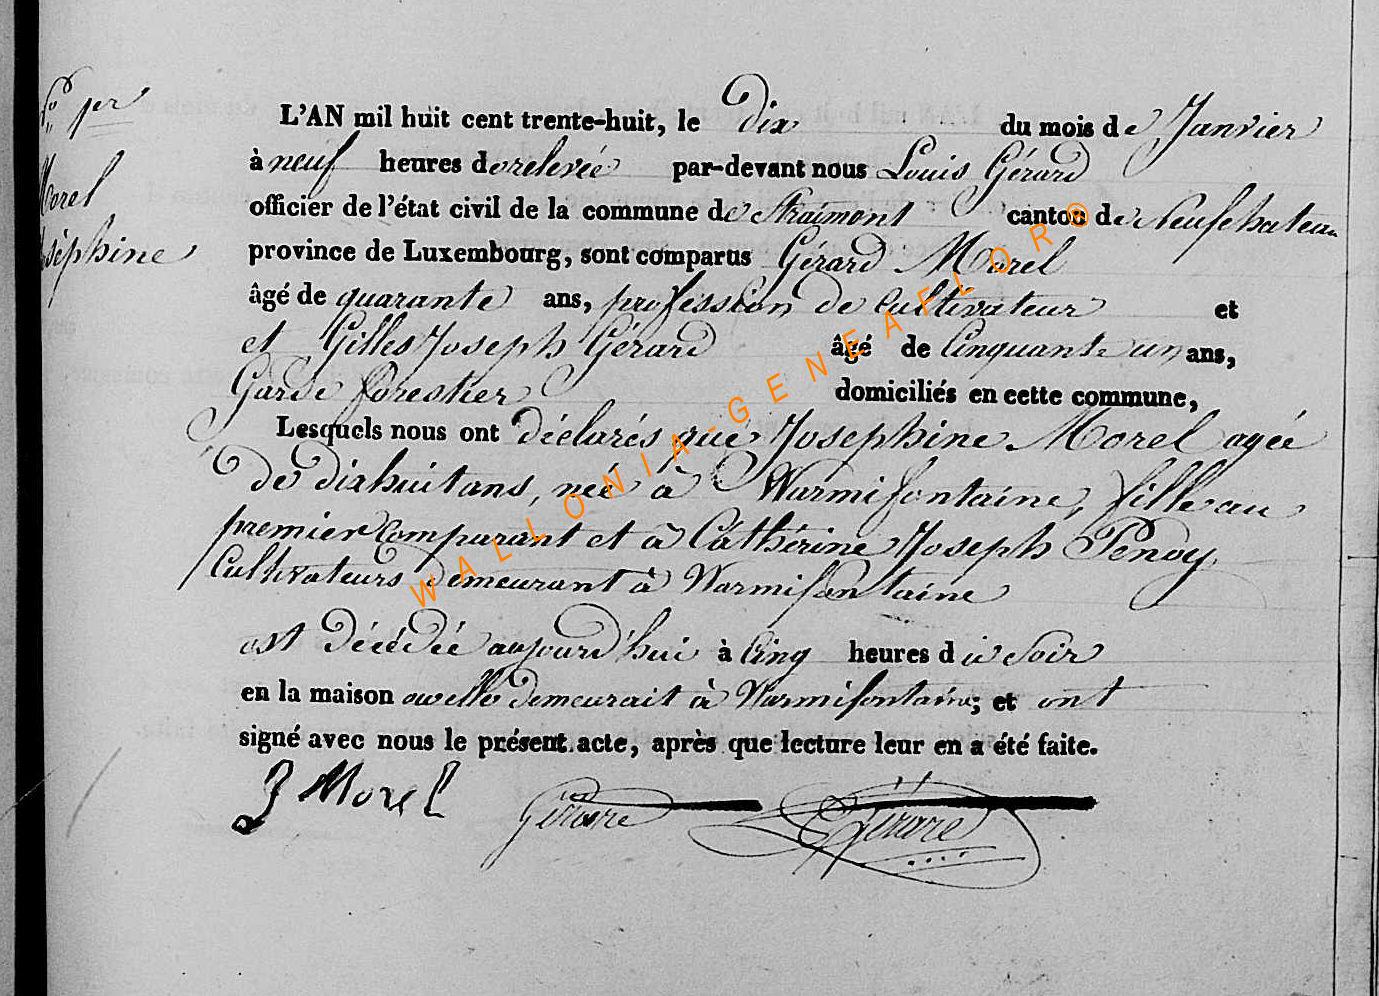 N° 1er
Morel
Joséphine
L'AN mil huit cent trente-huit, le dix du mois de Janvier
à neuf heures de relevée par-devant nous Louis Gérard
officier de l'état civil de la commune de Straimont canton de Neufchateau
province de Luxembourg, sont comparus Gérard Morel
âgé de quarante ans, profession de Cultivateur et
et Gilles Joseph Gérard âgé de Cinquante un ans,
Garde forestier domiciliés en cette commune,
Lesquels nous ont déclarés que Joséphine Morel agée
de dixhuit ans, née à Warmifontaine, fille au
premier Comparant et à Cathérine Joseph Pendy
Cultivateurs demeurant à Warmifontaine
est décédée aujourd'hui à Cinq heures du Soir
en la maison ou elle demeurait à Warmifontaine; et ont
signé avec nous le présent acte, après que lecture leur en a été faite.
G Morel Gérard L Gérard
WALLONIA-GENEAFLOR©